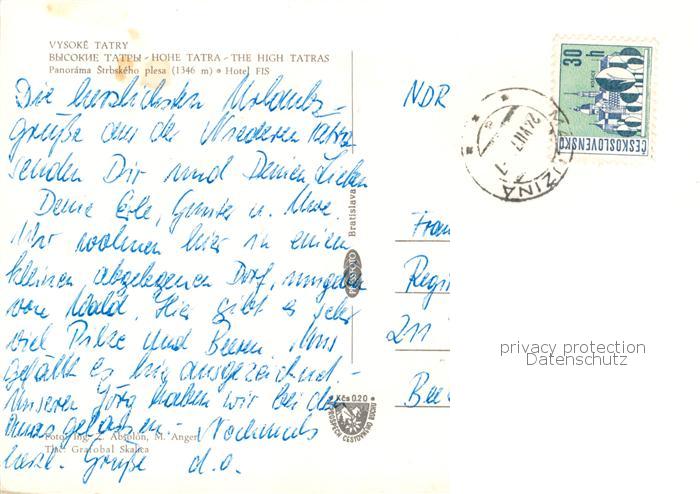 VYSOKÉ TATRY
ВЫСОКИЕ ТАТРЫ - HOHE TATRA - THE HIGH TATRAS
Panoráma Štrbského plesa (1346 m) • Hotel FIS
Die herzlichsten Urlaubs-
grüße aus der Niederen Tatra
senden Dir und Deinen Lieben
Deine Gunter u.
Wir wohnen hier in einem
kleinen, abgelegenen Dorf, umgeben
von Wald. Hier gibt es sehr
viel Pilze und Beeren. Uns
gefällt es hier ausgezeichnet. -
Unseren Jörg haben wir bei der
Omas gelassen. - Nochmals
herzl. Grüße d. o.
Foto: Ing. Z. Absolon, M. Anger
Tlač: Grafobal Skalica
Bratislava
Kčs 0.20
NDR
Fran
Regi
211
Bee
30 h
ČESKOSLOVENSKO
privacy protection
Datenschutz